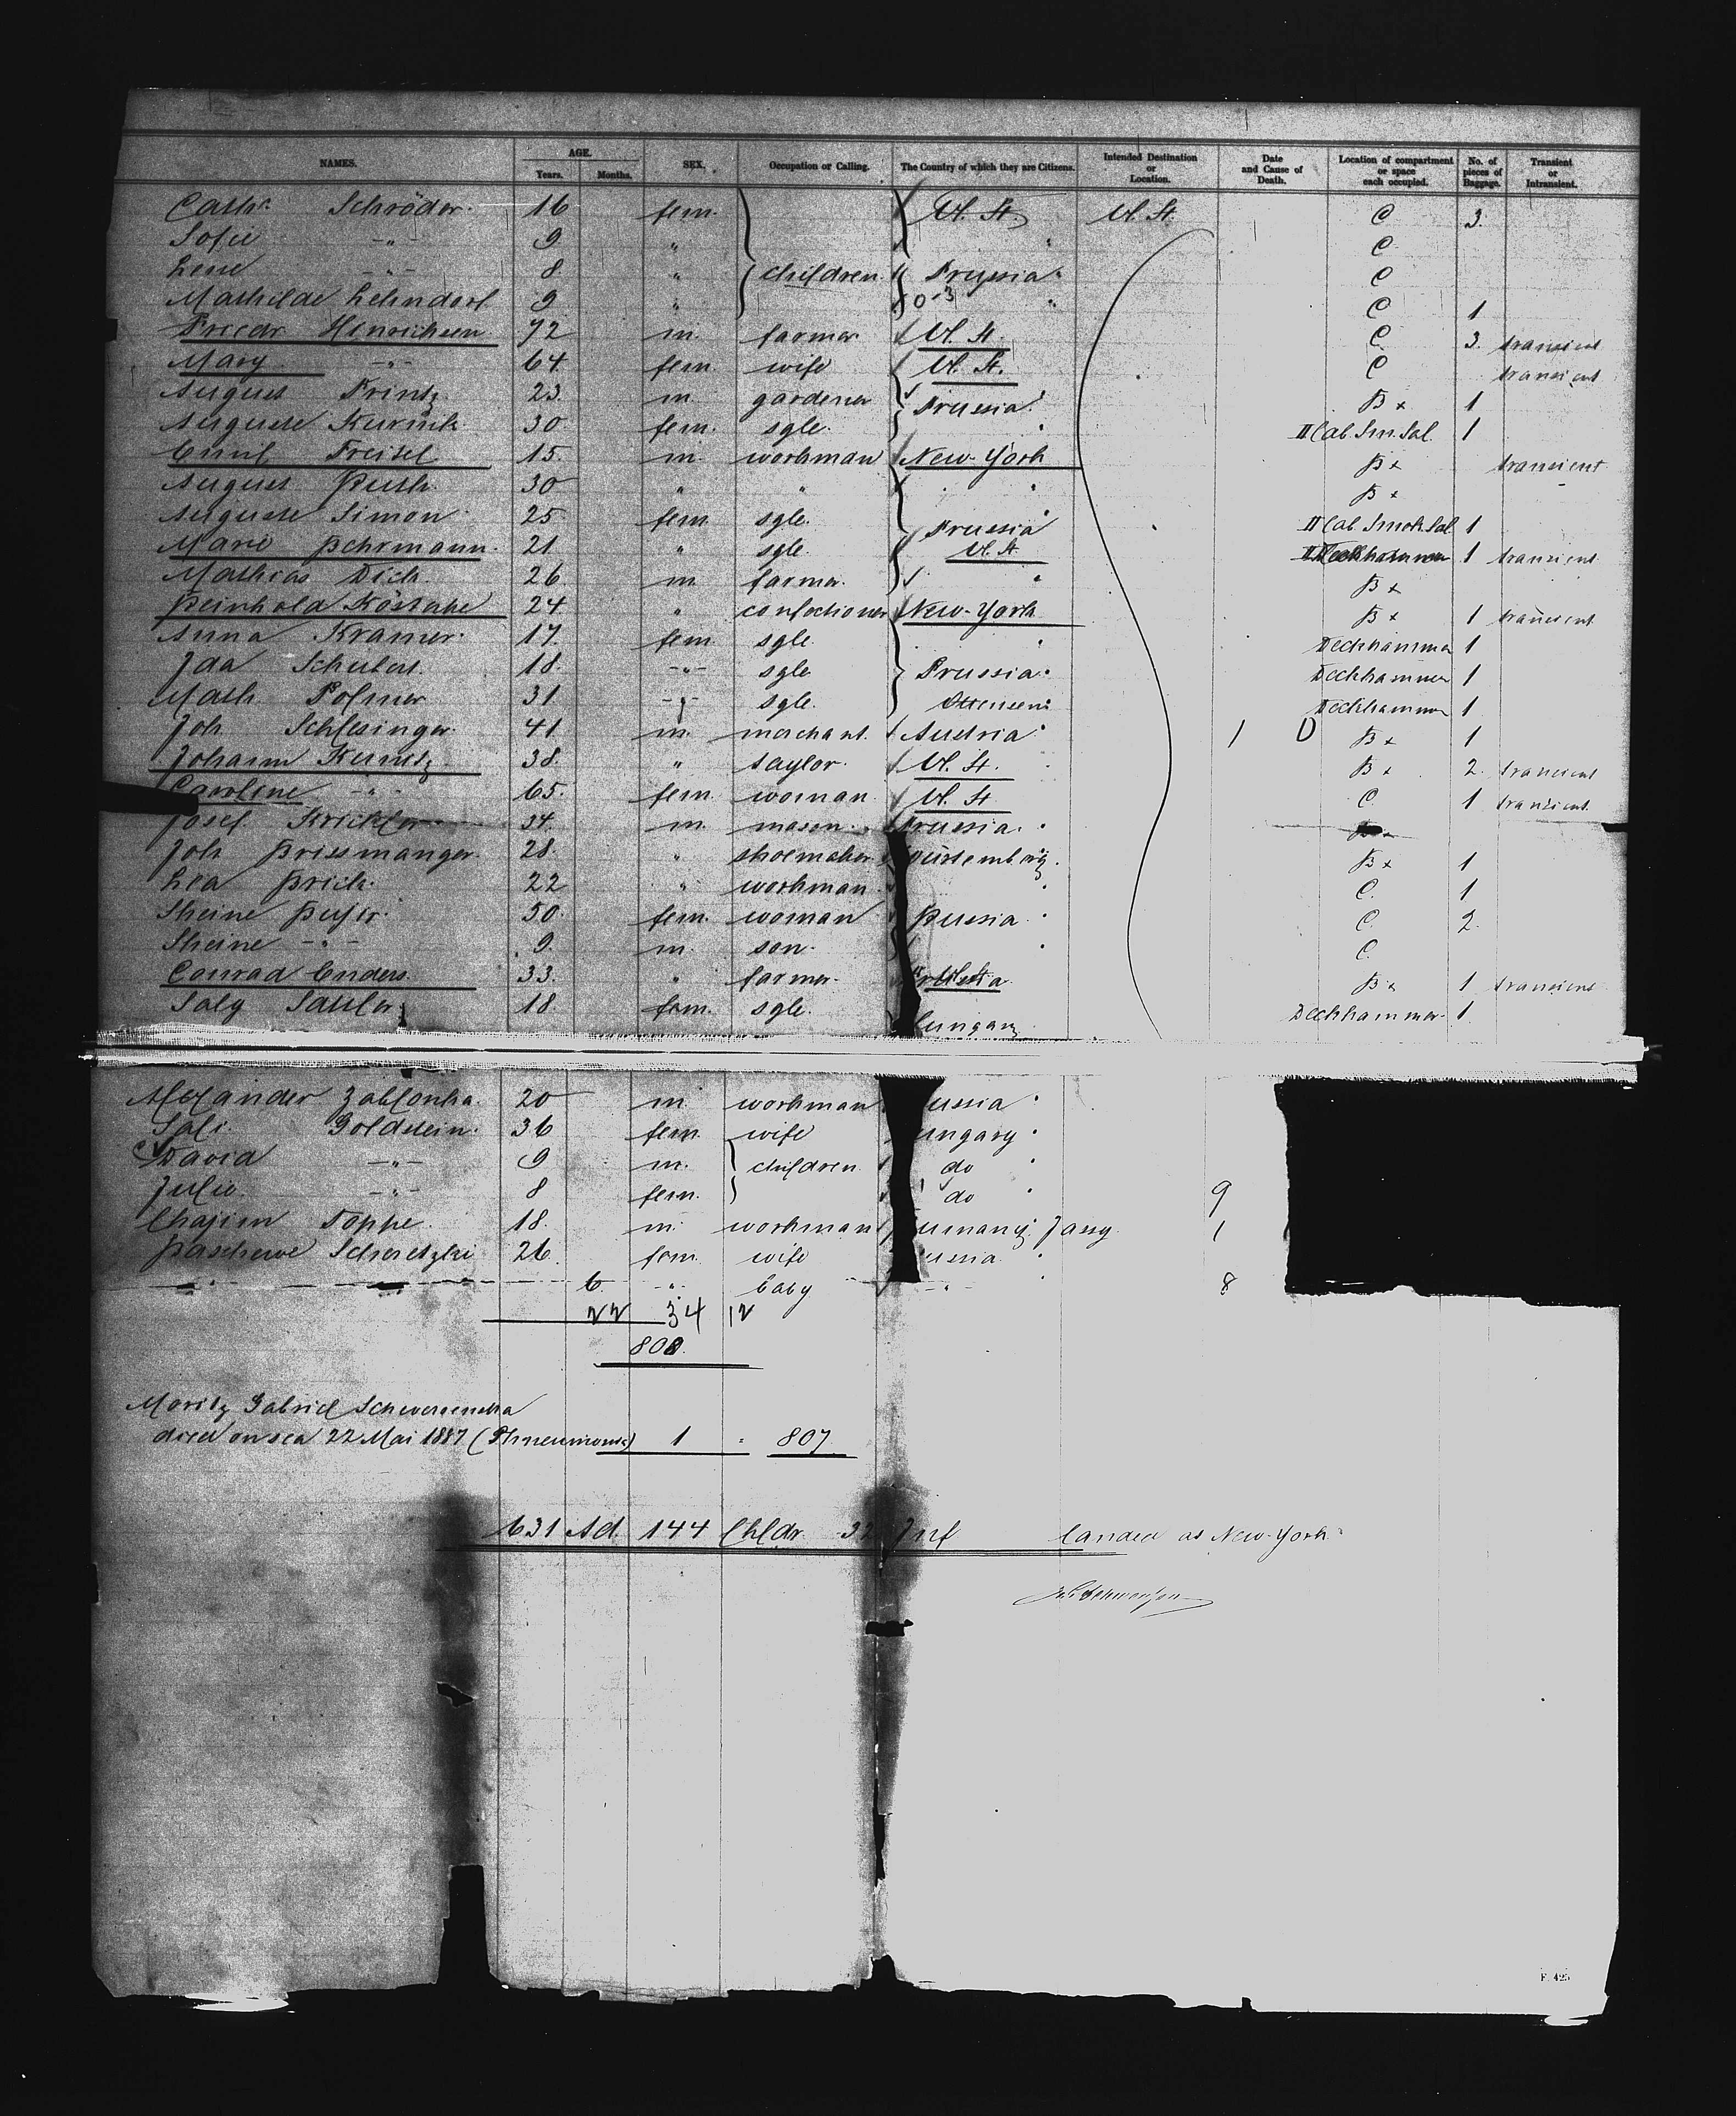 NAMES. AGE. Years. Months. SEX. Occupation or Calling. The Country of which they are Citizens. Intended Destination or Location. Date and Cause of Death. Location of compartment or space each occupied. No. of pieces of Baggage. Transient or Intransient.
Cath. Schröder 16 fem. U. St. U. St. C 3.
Sofie -"- 9 " " C
Lene -"- 8 " children Prussia " C
Mathilde Lehndorf 9 " 0-3 " C 1
Friedr Hinrichsen 72 m. farmer U. St. C 3. transient
Mary -"- 64 fem. wife U. St. C transient
August Printz 23 m. gardener Prussia B x 1
Auguste Kurnik 30 fem. sgle. " II Cab Sm. Sal. 1
Emil Freitel 15. m. workman New-York B x transient
August Ruth 30 " " " B x
Auguste Simon 25 fem sgle. Prussia II Cab Smok Sal 1
Marie Rehrmann 21 " sgle. U. St. 1 transient
Mathias Dich 26 m farmer. " B x
Reinhold 24 " confectioner New-York B x 1 transient
Anna Kramer 17. fem sgle. " Deckkammer 1
Ida Schubert 18. -"- sgle Prussia Deckkammer 1
Math. Polmer 31 -"- sgle. Deckkammer 1
Joh Schlesinger 41 m. merchant. Austria 1 D B x 1
Johann Kuntz 38. " taylor. U. St. B x 2. transient
Caroline -"- 65. fem. woman U. St C. 1 transient
Josef Strickler 34. m. mason Prussia.
Joh 28. " shoemaker B x 1
Lea 22 " workman " C. 1
Sheine 50. fem. woman Russia C. 2.
Sheine -"- 9. m. son. " C.
Conrad Enders. 33. " farmer. B x 1 transient
Saly Sauler 18. fem. sgle. ungarn Deckkammer 1
Alexander Jablonka 20 m workman ussia
Sali Goldstein 36 fem. wife ungary
David -"- 9 m. children do
Julie -"- 8 fem. do 9
Chajim Toppe 18. m. workman Jassy 1
Raschewe Scheretzki 26 fem. wife ussia
-"- -"- 6 -"- baby -"- 8
22 34 12
808.
Moritz Gabriel
died on sea 22 Mai 1887 ( 1 = 807
631 Ad. 144 Chldr 32 Inf landed at New-York
F. 425